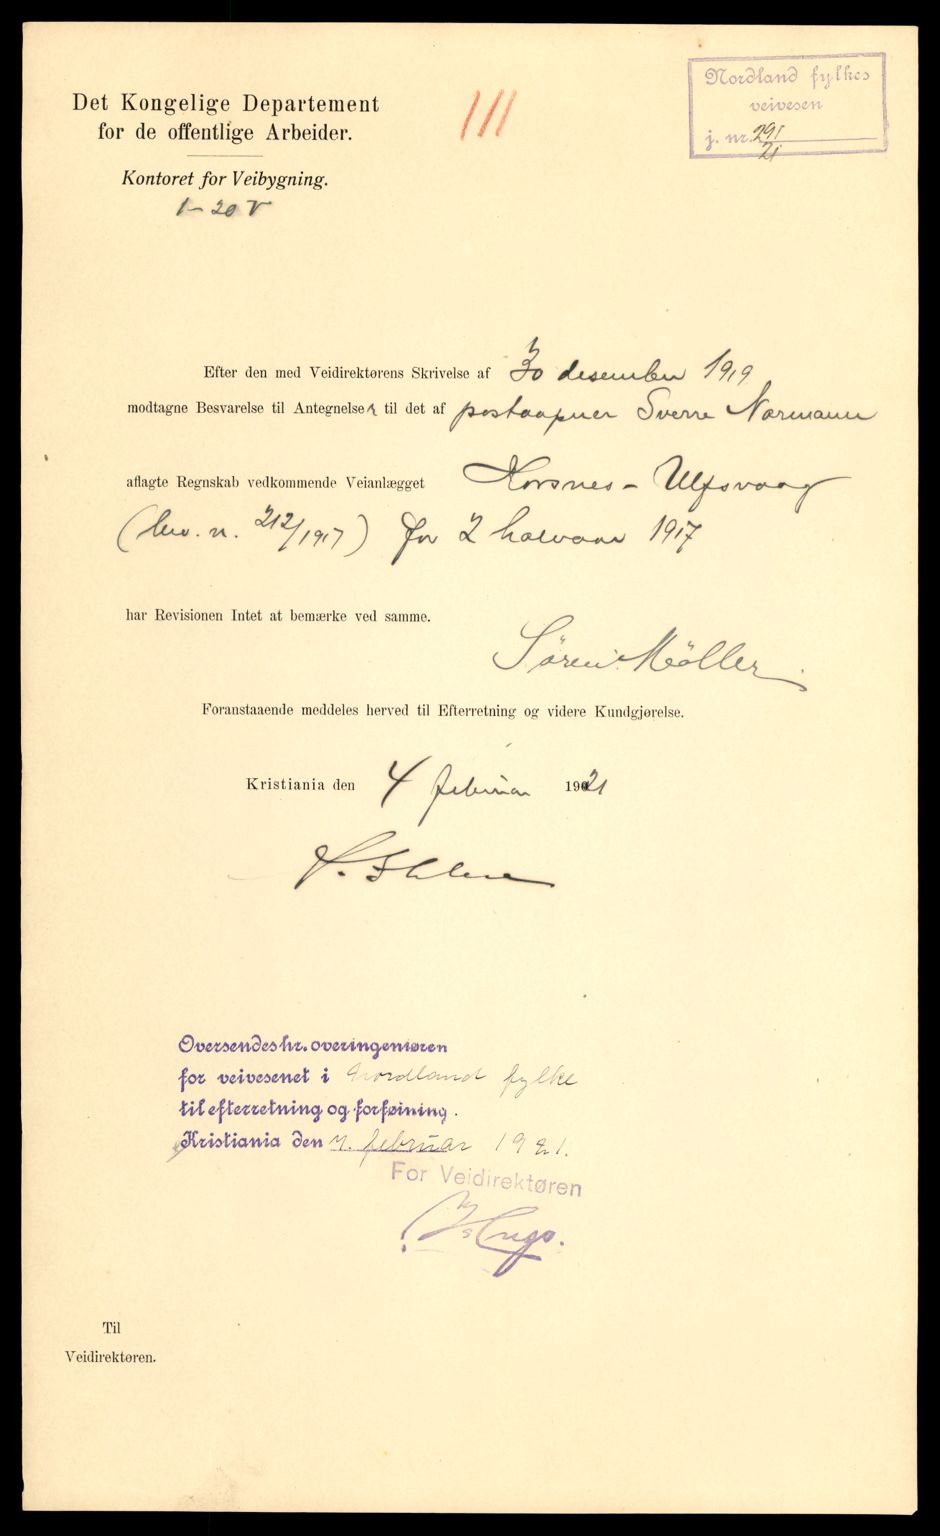 Det Kongelige Departement
for de offentlige Arbeider.
Kontoret for Veibygning.
1-20 V
111
Nordland fylkes
veivesen
j. nr. 291/21
Efter den med Veidirektørens Skrivelse af 30 desember 1919
modtagne Besvarelse til Antegnelser til det af postaapner Sverre Normann
aflagte Regnskab vedkommende Veianlægget Korsnes - Ulfsvaag
n. 212/1917) for 2 halvaar 1917
har Revisionen Intet at bemærke ved samme.
Søren Møller
Foranstaaende meddeles herved til Efterretning og videre Kundgjørelse.
Kristiania den 4 februar 1921
Oversendes hr. overingeniøren
for veivesenet i Nordland fylke
til efterretning og forføining.
Kristiania den 7. februar 1921.
For Veidirektøren
Til
Veidirektøren.